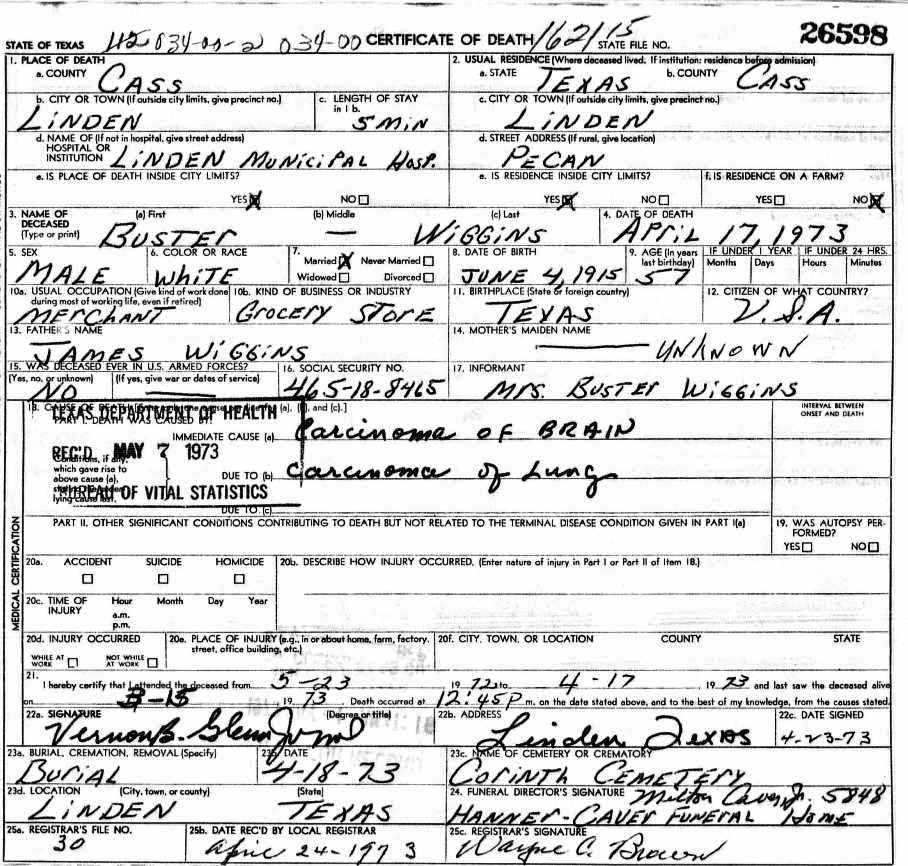 STATE OF TEXAS 112 034-00-2 034-00 CERTIFICATE OF DEATH 162115 STATE FILE NO. 26598
1. PLACE OF DEATH
a. COUNTY CASS
2. USUAL RESIDENCE (Where deceased lived. If institution: residence before admission)
a. STATE TEXAS b. COUNTY CASS
b. CITY OR TOWN (If outside city limits, give precinct no.) LINDEN
c. LENGTH OF STAY in 1 b. 5 MIN
c. CITY OR TOWN (If outside city limits, give precinct no.) LINDEN
d. NAME OF (If not in hospital, give street address)
HOSPITAL OR
INSTITUTION LINDEN MUNICIPAL HOSP.
d. STREET ADDRESS (If rural, give location)
PECAN
e. IS PLACE OF DEATH INSIDE CITY LIMITS?
YES☒ NO☐
e. IS RESIDENCE INSIDE CITY LIMITS?
YES☒ NO☐
f. IS RESIDENCE ON A FARM?
YES☐ NO☒
3. NAME OF DECEASED (Type or print)
(a) First (b) Middle (c) Last
BUSTER — WIGGINS
4. DATE OF DEATH
APRIL 17, 1973
5. SEX
MALE
6. COLOR OR RACE
WHITE
7. Married☒ Never Married☐
Widowed☐ Divorced☐
8. DATE OF BIRTH
JUNE 4, 1915
9. AGE (In years last birthday)
57
IF UNDER 1 YEAR
Months Days
IF UNDER 24 HRS.
Hours Minutes
10a. USUAL OCCUPATION (Give kind of work done during most of working life, even if retired)
MERCHANT
10b. KIND OF BUSINESS OR INDUSTRY
GROCERY STORE
11. BIRTHPLACE (State or foreign country)
TEXAS
12. CITIZEN OF WHAT COUNTRY?
U.S.A.
13. FATHER'S NAME
JAMES WIGGINS
14. MOTHER'S MAIDEN NAME
UNKNOWN
15. WAS DECEASED EVER IN U.S. ARMED FORCES?
(Yes, no, or unknown) (If yes, give war or dates of service)
NO —
16. SOCIAL SECURITY NO.
465-18-8465
17. INFORMANT
MRS. BUSTER WIGGINS
MEDICAL CERTIFICATION
18. CAUSE OF DEATH
INTERVAL BETWEEN ONSET AND DEATH
TEXAS DEPARTMENT OF HEALTH
PART I. DEATH WAS CAUSED BY:
IMMEDIATE CAUSE (a) Carcinoma OF BRAIN
REC'D MAY 7 1973
Conditions, if any, which gave rise to above cause (a),
DUE TO (b) Carcinoma of Lung
lying cause last.
BUREAU OF VITAL STATISTICS
DUE TO (c)
PART II. OTHER SIGNIFICANT CONDITIONS CONTRIBUTING TO DEATH BUT NOT RELATED TO THE TERMINAL DISEASE CONDITION GIVEN IN PART I(a)
19. WAS AUTOPSY PERFORMED?
YES☐ NO☐
20a. ACCIDENT SUICIDE HOMICIDE
☐ ☐ ☐
20b. DESCRIBE HOW INJURY OCCURRED. (Enter nature of injury in Part I or Part II of Item 18.)
20c. TIME OF INJURY Hour Month Day Year
a.m.
p.m.
20d. INJURY OCCURRED
WHILE AT WORK ☐ NOT WHILE AT WORK ☐
20e. PLACE OF INJURY (e.g., in or about home, farm, factory, street, office building, etc.)
20f. CITY, TOWN, OR LOCATION COUNTY STATE
21. I hereby certify that I attended the deceased from 5-23 1972 to 4-17 1973 and last saw the deceased alive
on 3-15 1973 Death occurred at 12:45 P m. on the date stated above, and to the best of my knowledge, from the causes stated.
22a. SIGNATURE (Degree or title)
22b. ADDRESS
Linden Texas
22c. DATE SIGNED
4-23-73
23a. BURIAL, CREMATION, REMOVAL (Specify)
BURIAL
23b. DATE
4-18-73
23c. NAME OF CEMETERY OR CREMATORY
CORINTH CEMETERY
23d. LOCATION (City, town, or county) (State)
LINDEN TEXAS
24. FUNERAL DIRECTOR'S SIGNATURE Milton Caver Jr. 5848
HANNER-CAVER FUNERAL HOME
25a. REGISTRAR'S FILE NO.
30
25b. DATE REC'D BY LOCAL REGISTRAR
April 24-1973
25c. REGISTRAR'S SIGNATURE
Wayne C. Brown